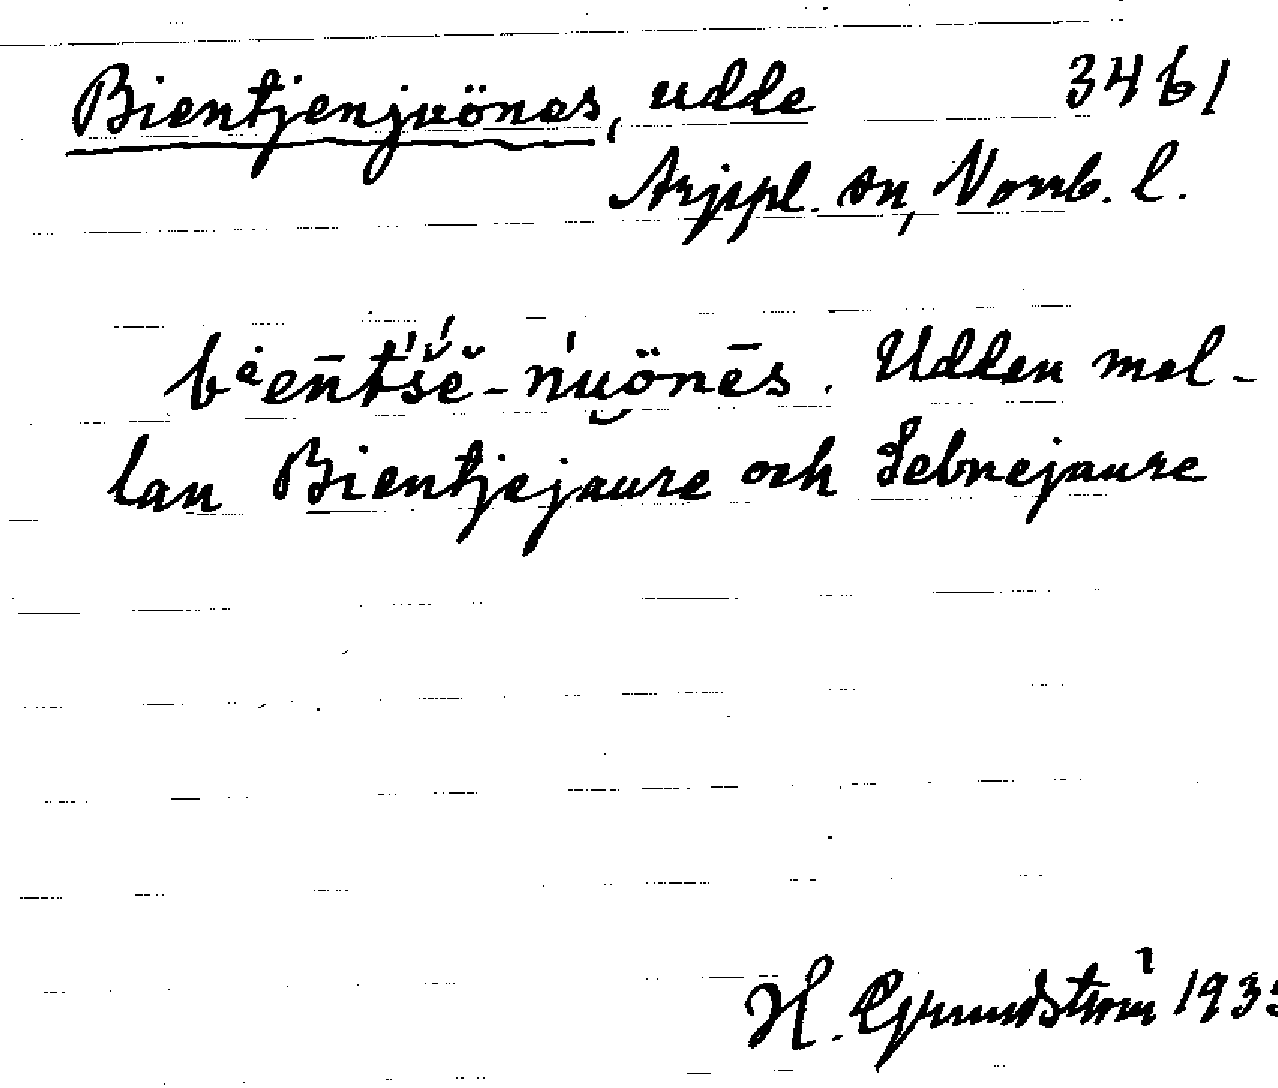 Bientjenjuönes, udde 34 b 1
Arjepl. sn, Norrb. l.
Udden mel-
lan Bientjejaure och Sebnejaure
H. Grundström